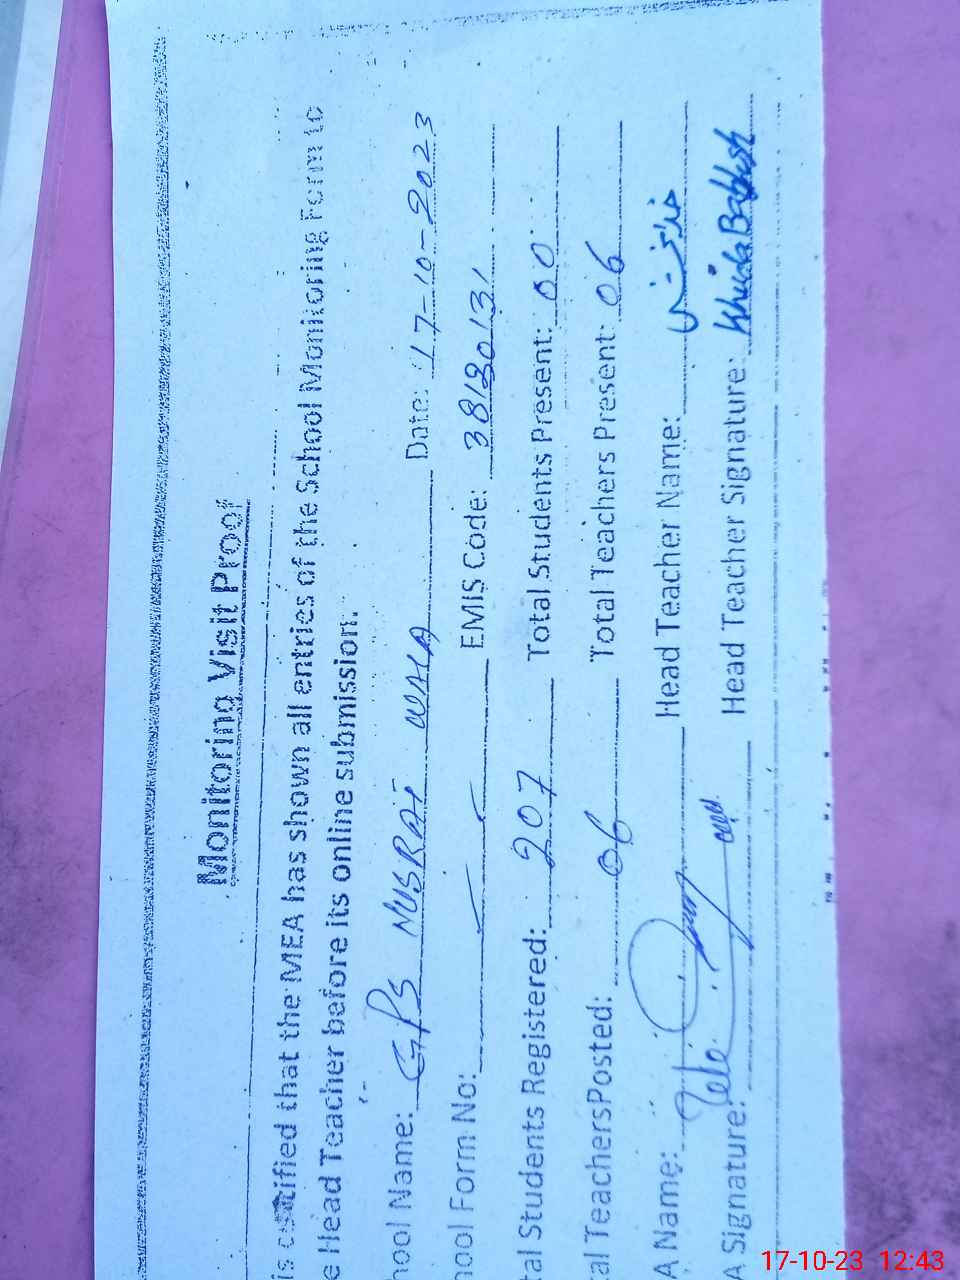 Monitoring Visit Proof
is certified that the MEA has shown all entries of the School Monitoring Form to
e Head Teacher before its online submission.
hool Name: GPS NUSRAT WALA Date: 17-10-2023
hool Form No: EMIS Code: 38130131
tal Students Registered: 207 Total Students Present: 00
tal TeachersPosted: 06 Total Teachers Present: 06
A Name: Head Teacher Name: خدا بخش
A Signature: Head Teacher Signature: Khuda Bakhsh
17-10-23 12:43